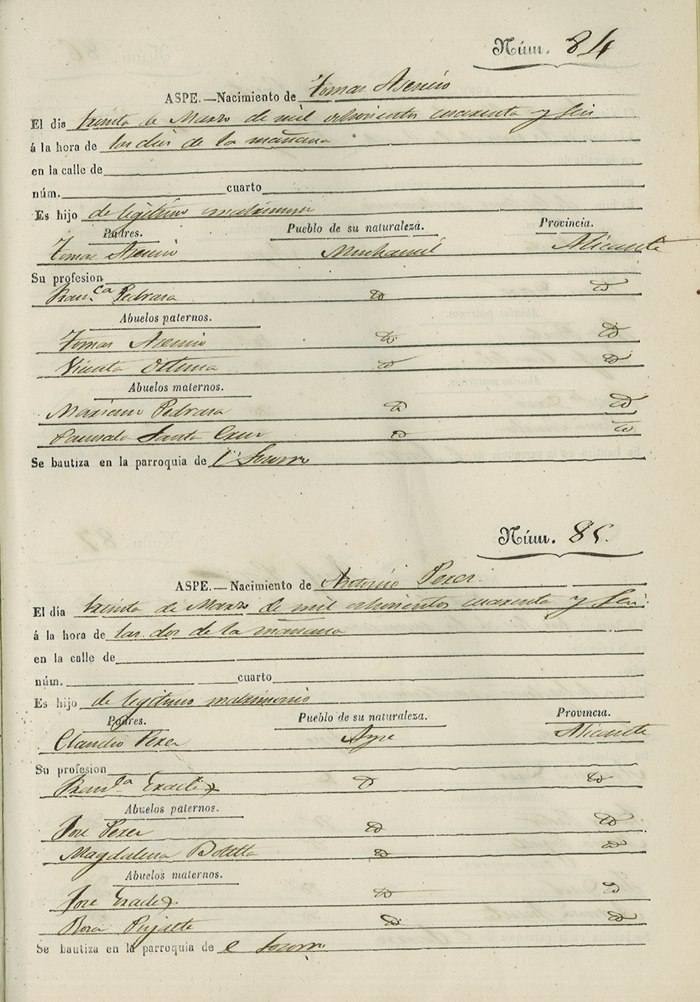 Núm. 84
ASPE.—Nacimiento de Tomas Asencio
El dia treinta de Marzo de mil ochocientos cuarenta y seis
á la hora de las dies de la mañana
en la calle de
núm. cuarto
Es hijo de legitimo matrimonio
Padres. Pueblo de su naturaleza. Provincia.
Tomas Asencio Muchamiel Alicante
Su profesion
Franca Pedraza
Abuelos paternos.
Tomas Asencio
Vicenta
Abuelos maternos.
Mariano Pedraza
Santa Cruz
Se bautiza en la parroquia de l Socorro
Núm. 85.
ASPE.—Nacimiento de Antonio Perez.
El día treinta de Marzo de mil ochocientos cuarenta y seis
á la hora de las dos de la mañana
en la calle de
núm. cuarto
Es hijo de legitimo matrimonio
Padres. Pueblo de su naturaleza. Provincia.
Claudio Perez Aspe Alicante
Su profesion
Franca
Abuelos paternos.
Jose Perez
Magdalena Botella
Abuelos maternos.
Jose
Rosa
Se bautiza en la parroquia de l Socorro